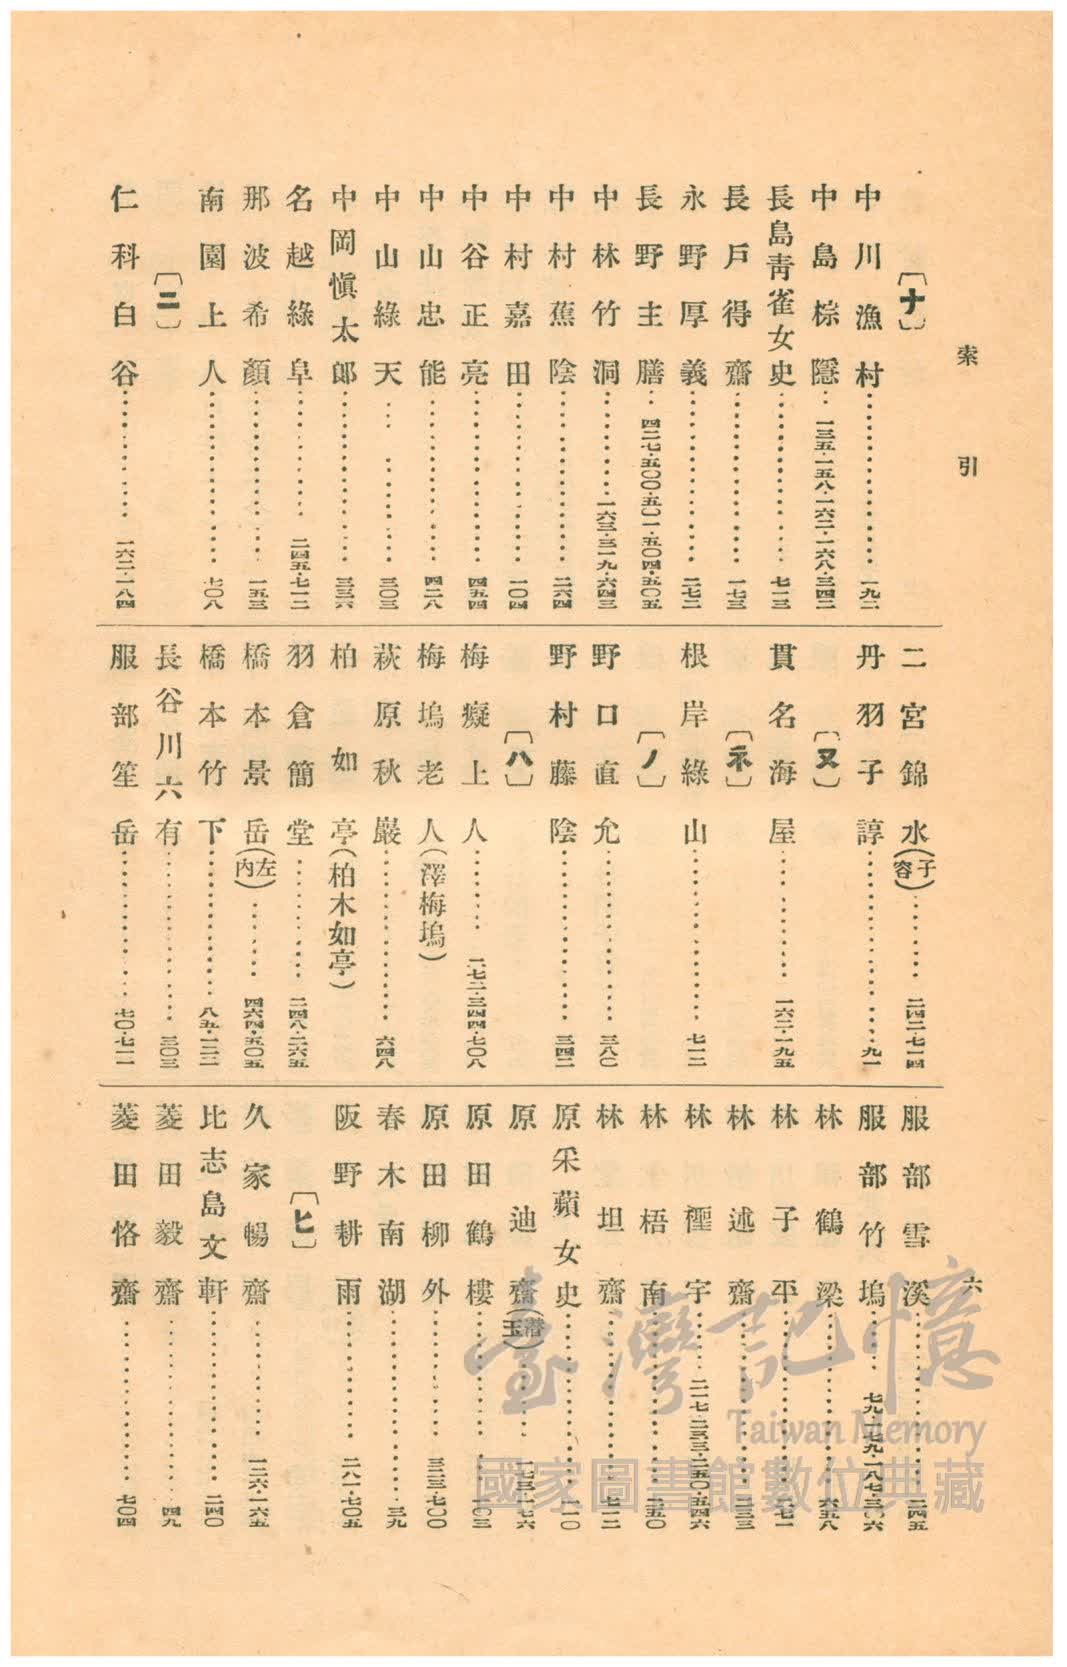 索引
六
〔ナ〕
中川漁村………一九二
中島棕隱…一三五・一五八・一六二・一六八・三四二
長島靑雀女史………七一三
長戶得齋………一七三
永野厚義………二七二
長野主膳…四二七・五〇〇・五〇一・五〇四・五〇五
中林竹洞………一六三・三一九・六四三
中村蕉陰………二六四
中村嘉田………一〇四
中谷正亮………四五四
中山忠能………四二八
中山綠天………三〇三
中岡愼太郞………三三六
名越綠阜………二四五・七一二
那波希顏………一五三
南園上人………七〇八
〔ニ〕
仁科白谷………一六二・一八四
二宮錦水(子容)………二四二・七一四
丹羽子諄………九一
〔ヌ〕
貫名海屋………一六二・一九五
〔ネ〕
根岸綠山………七一二
〔ノ〕
野口直允………三八〇
野村藤陰………三四二
〔ハ〕
梅癡上人………一七二・三四四・七〇八
梅塢老人(澤梅塢)
萩原秋巖………六四八
柏如亭(柏木如亭)
羽倉簡堂………二四八・二六五
橋本景岳(左內)………四六四・五〇五
橋本竹下………八五・一二二
長谷川六有………三〇三
服部笙岳………七〇・七一一
服部雪溪………二四五
服部竹塢………七九・一七九・一八七・三〇六
林鶴梁………六五八
林子平………七一
林述齋………二三三
林檉宇………二一七・二三三・二五〇・五四六
林梧南………二五〇
林坦齋………七一二
原采蘋女史………一一〇
原迪齋(潛玉)………一七三・一七六
原田鶴樓………一〇三
原田柳外………三二三・七〇〇
春木南湖………三九
阪野耕雨………二八一・七〇五
〔ヒ〕
久家暢齋………一二六・一六五
比志島文軒………二四〇
菱田毅齋………四九
菱田恪齋………七〇四
臺灣記憶
Taiwan Memory
國家圖書館數位典藏